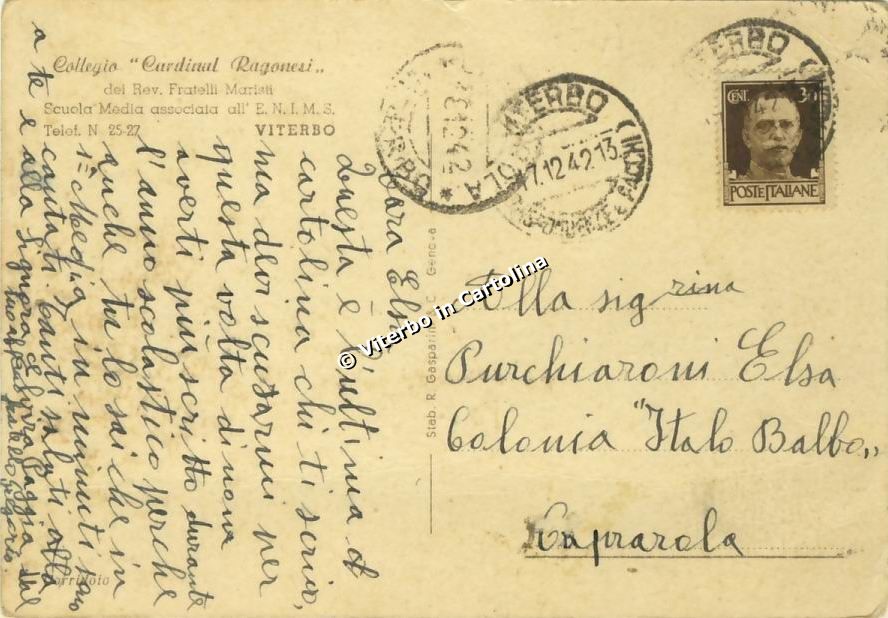 Collegio "Cardinal Ragonesi„
dei Rev. Fratelli Maristi
Scuola Media associata all' E. N. I. M. S.
Telef. N 25-27 VITERBO
VITERBO
17.12.42.13
VITERBO
CENT. 30
POSTE ITALIANE
Cara Elsa
Questa è l'ultima
cartolina chi ti scrivo,
ma devi scusarmi per
questa volta di nona
averti più scritto durante
l'anno scolastico perche
anche tu lo sai che in
1ª Media, in minuti sono
contati. Tanti saluti alla
a te e alla Signora
tuo
fratello
Corridoio
Stab. R. Gasparini C. Genova
© Viterbo in Cartolina
Alla sigrina
Purchiaroni Elsa
Colonia "Italo Balbo„
Caprarola